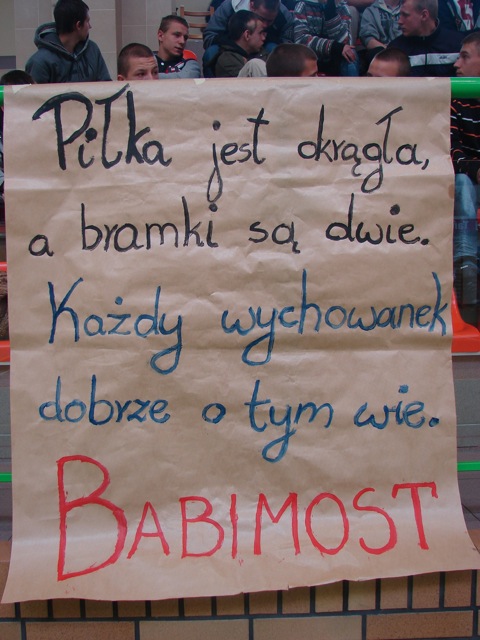 Piłka jest okrągła,
a bramki są dwie.
Każdy wychowanek
dobrze o tym wie.
BABIMOST